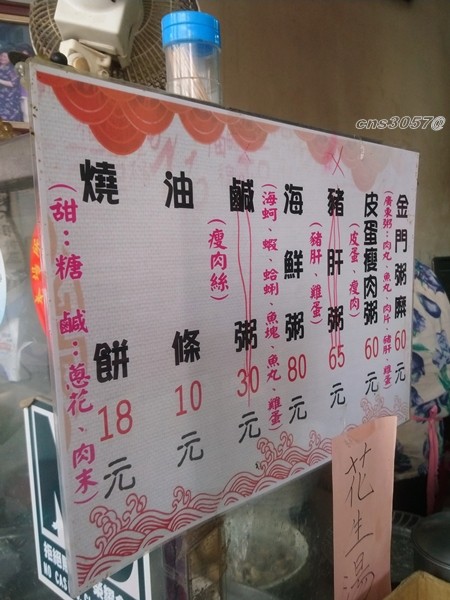 cns3057@
金門粥糜 60元
(廣東粥:肉丸、魚丸、肉片、豬肝、雞蛋)
皮蛋瘦肉粥 60元
(皮蛋、瘦肉)
豬肝粥 65元
(豬肝、雞蛋)
海鮮粥 80元
(海蚵、蝦、蛤蜊、魚塊、魚丸、雞蛋)
鹹粥 30元
(瘦肉絲)
油條 10元
燒餅 18元
(甜:糖 鹹:蔥花、肉末)
花生湯
拒絕
NO CAS